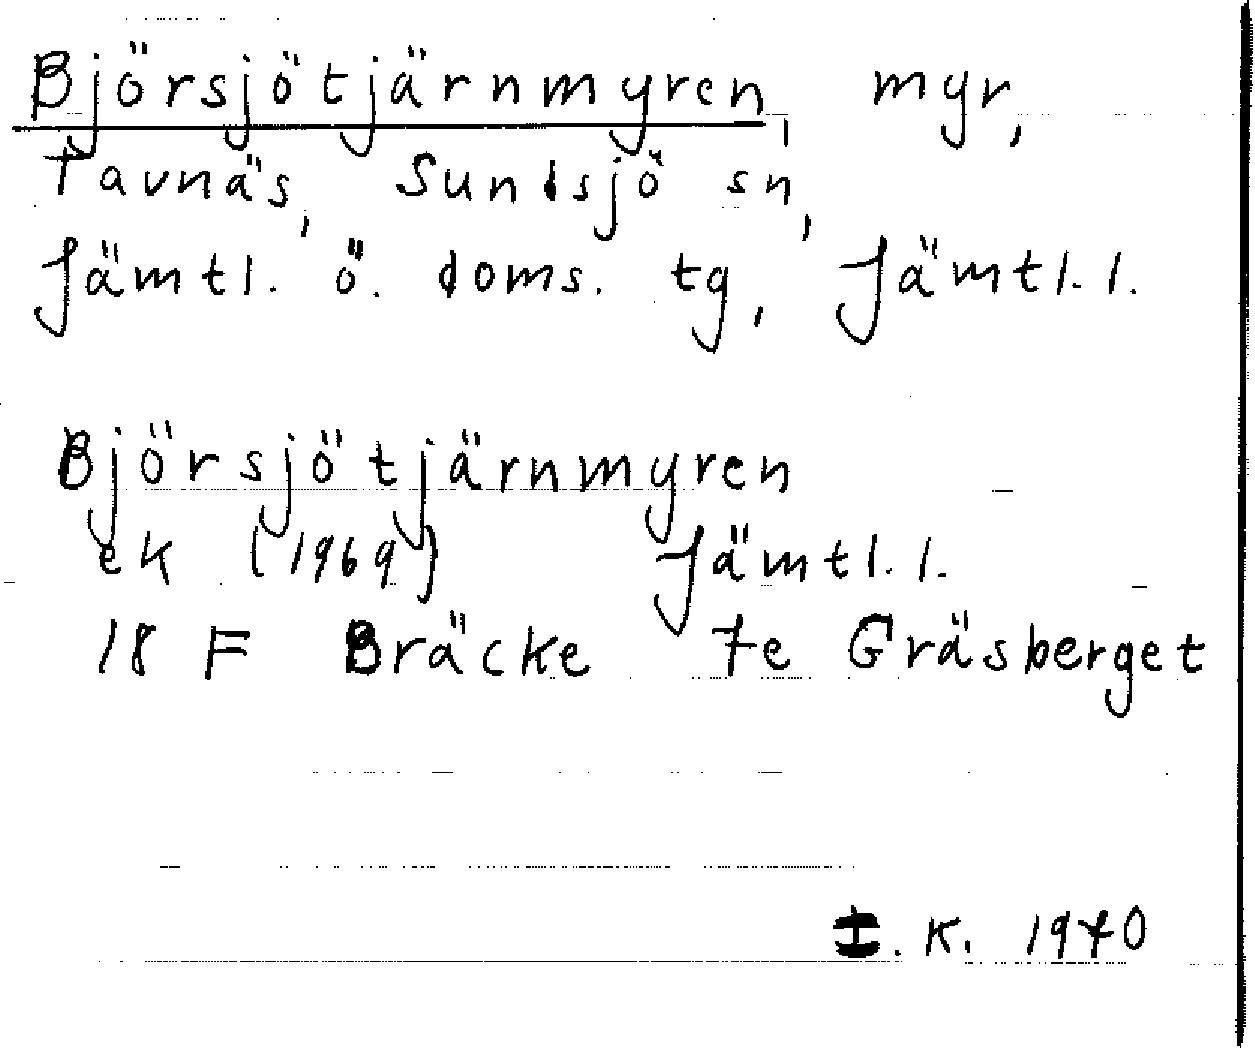 Björsjötjärnmyren, myr,
Tavnäs, Sundsjö sn,
Jämtl. ö. doms. tg, Jämtl. l.
Björsjötjärnmyren
ek (1969) Jämtl. l.
18 F Bräcke 7e Gräsberget
I. K. 1970